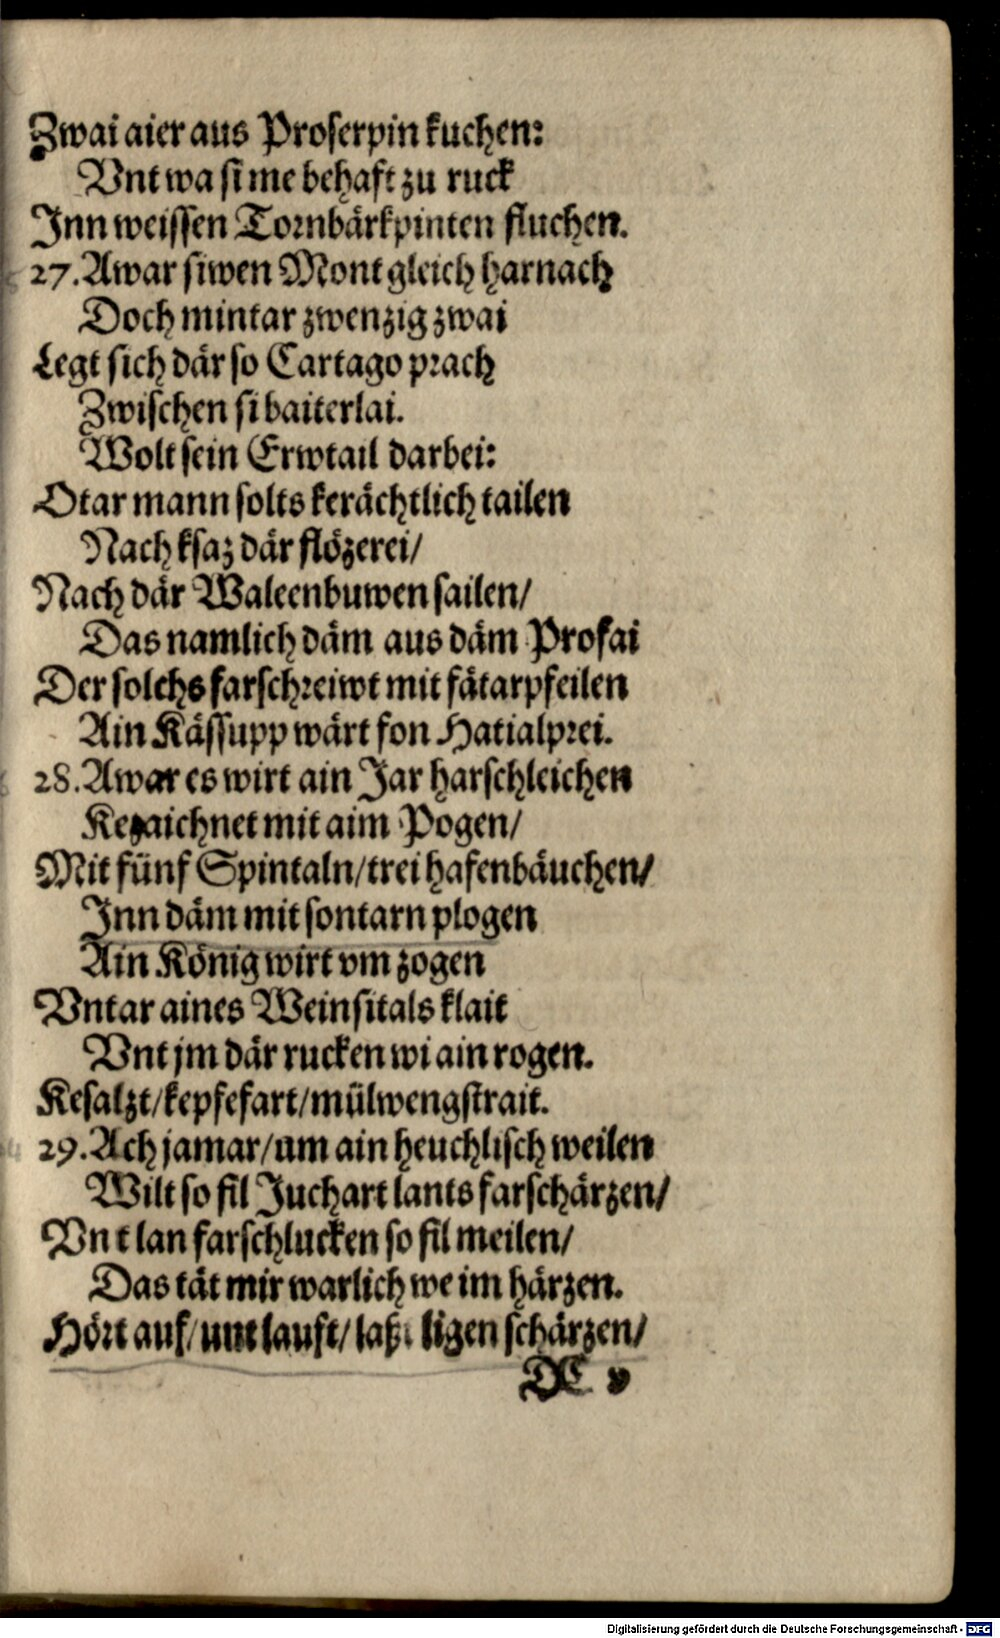 Zwai aier aus Proserpin kuchen:
Vnt wa si me behaft zu ruck
Inn weissen Tornbärkpinten fluchen.
27. Awar siwen Mont gleich harnach
Doch mintar zwenzig zwai
Legt sich där so Cartago prach
Zwischen si baiterlai.
Wolt sein Erwtail darbei:
Otar mann solts kerächtlich tailen
Nach ksaz där flözerei/
Nach där Waleenbuwen sailen/
Das namlich däm aus däm Profai
Der solchs farschreiwt mit fätarpfeilen
Ain Kässupp wärt fon Hatialprei.
28. Awar es wirt ain Jar harschleichen
Kezaichnet mit aim Pogen/
Mit fünf Spintaln/ trei hafenbäuchen/
Inn däm mit sontarn plogen
Ain König wirt vm zogen
Vntar aines Weinsitals klait
Vnt jm där rucken wi ain rogen.
Kesalzt/ kepfefart/ mülwengstrait.
29. Ach jamar/ um ain heuchlisch weilen
Wilt so fil Juchart lants farschärzen/
Vnt lan farschlucken so fil meilen/
Das tät mir warlich we im härzen.
Hört auf/ unt lauft/ laßt ligen schärzen/
DC v
Digitalisierung gefördert durch die Deutsche Forschungsgemeinschaft - DFG